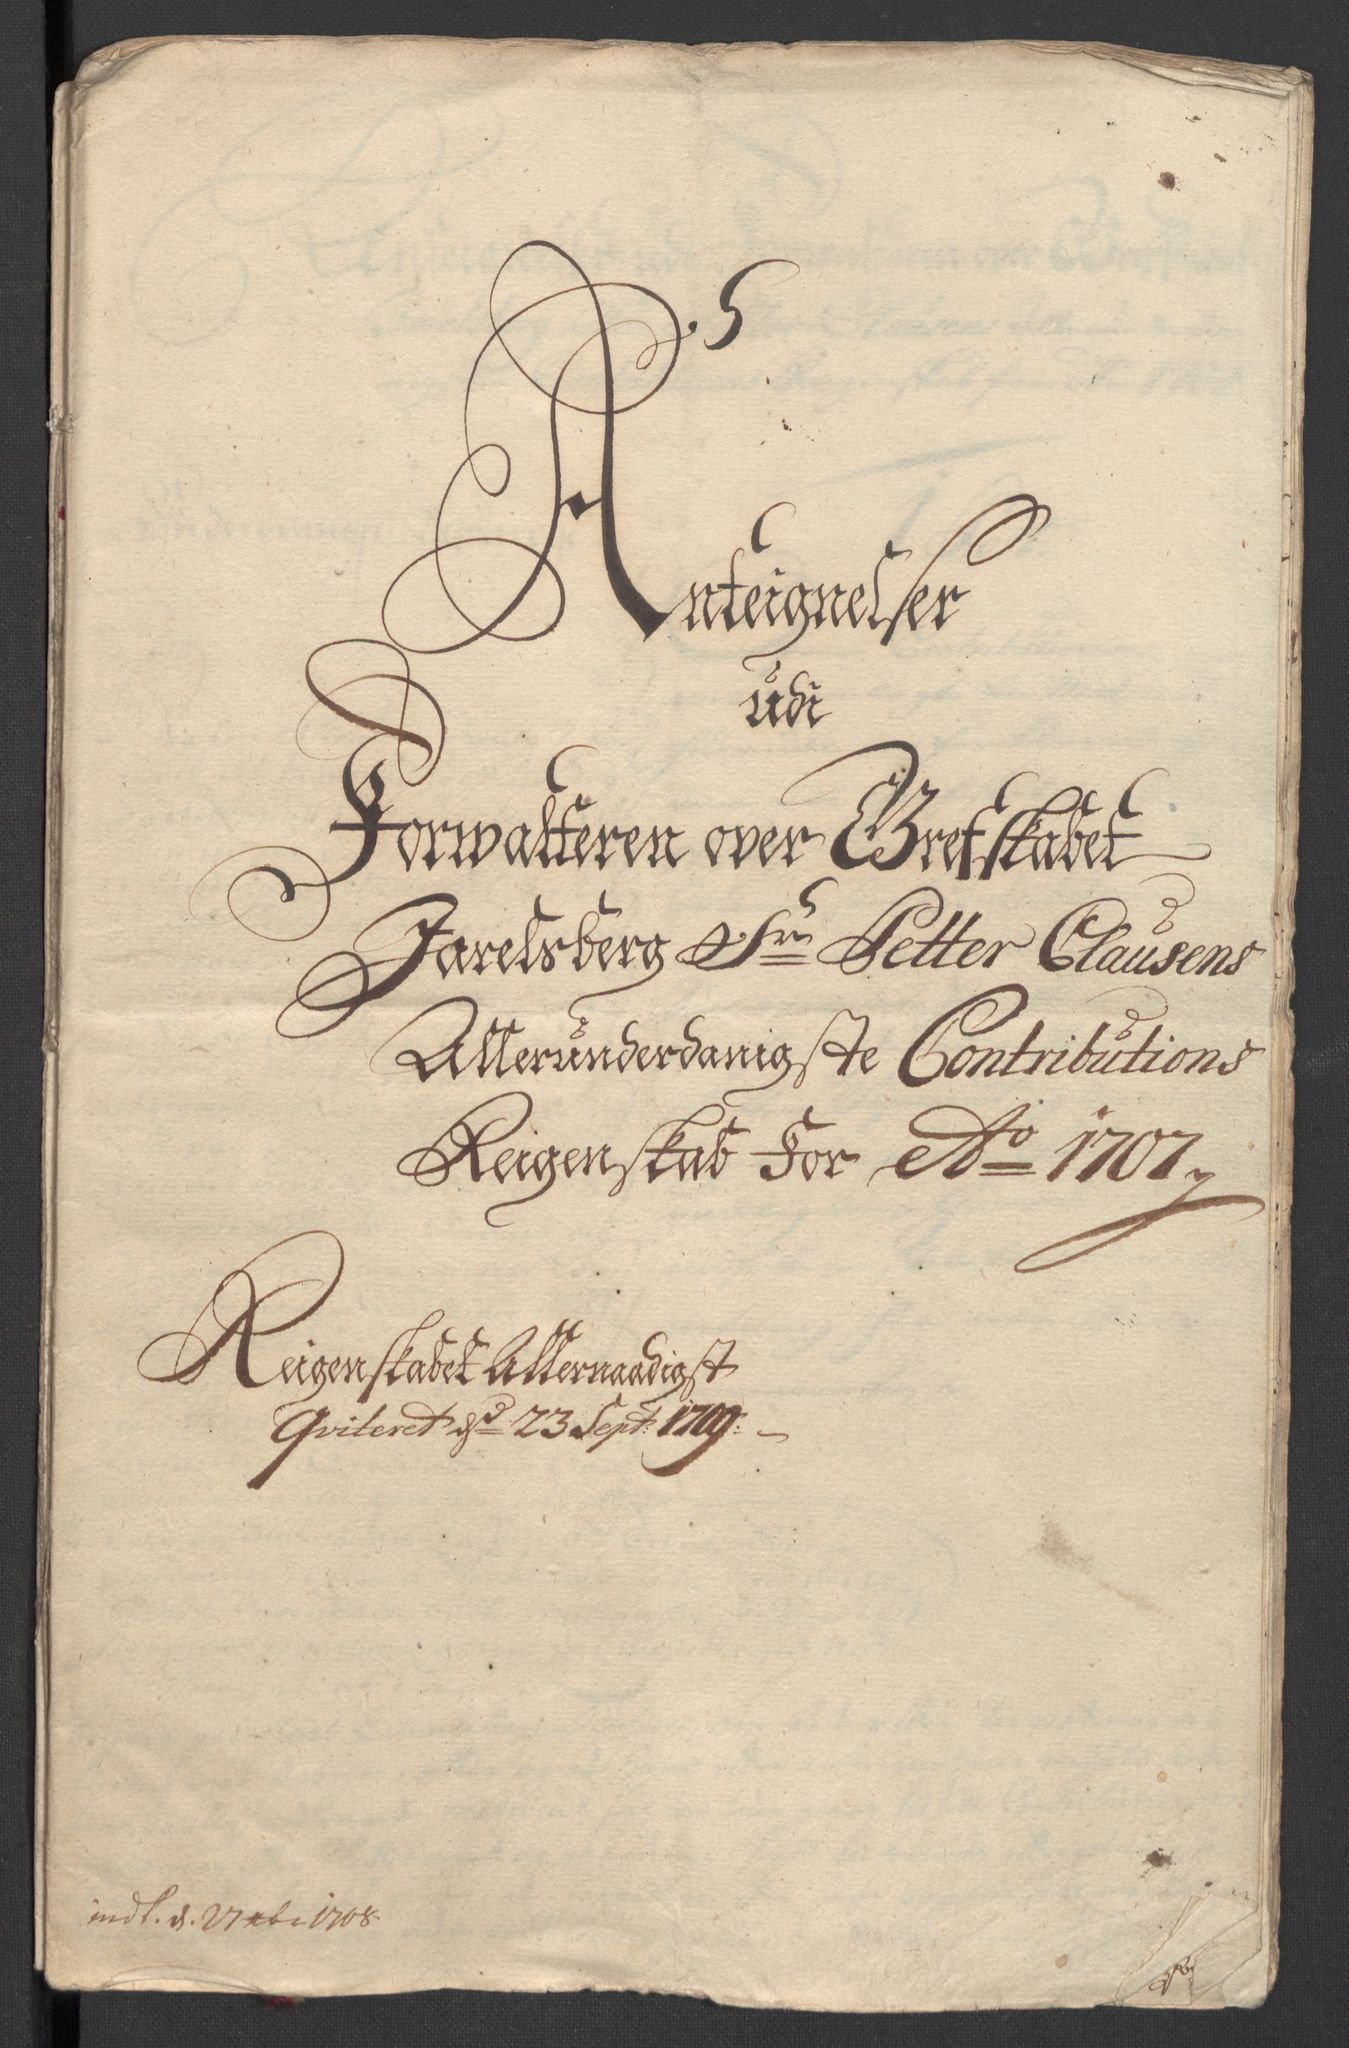 5
Anteignelser
udi
Forwalteren over Grefskabet
Jarelsberg Sr. Petter Clausens
Allerunderdanigste Contributions
Reigenskab for Ao 1707
Reigenskabet Allernaadigst
Qviteret d. 23 Sept. 1709.
indl. d. 27 1708